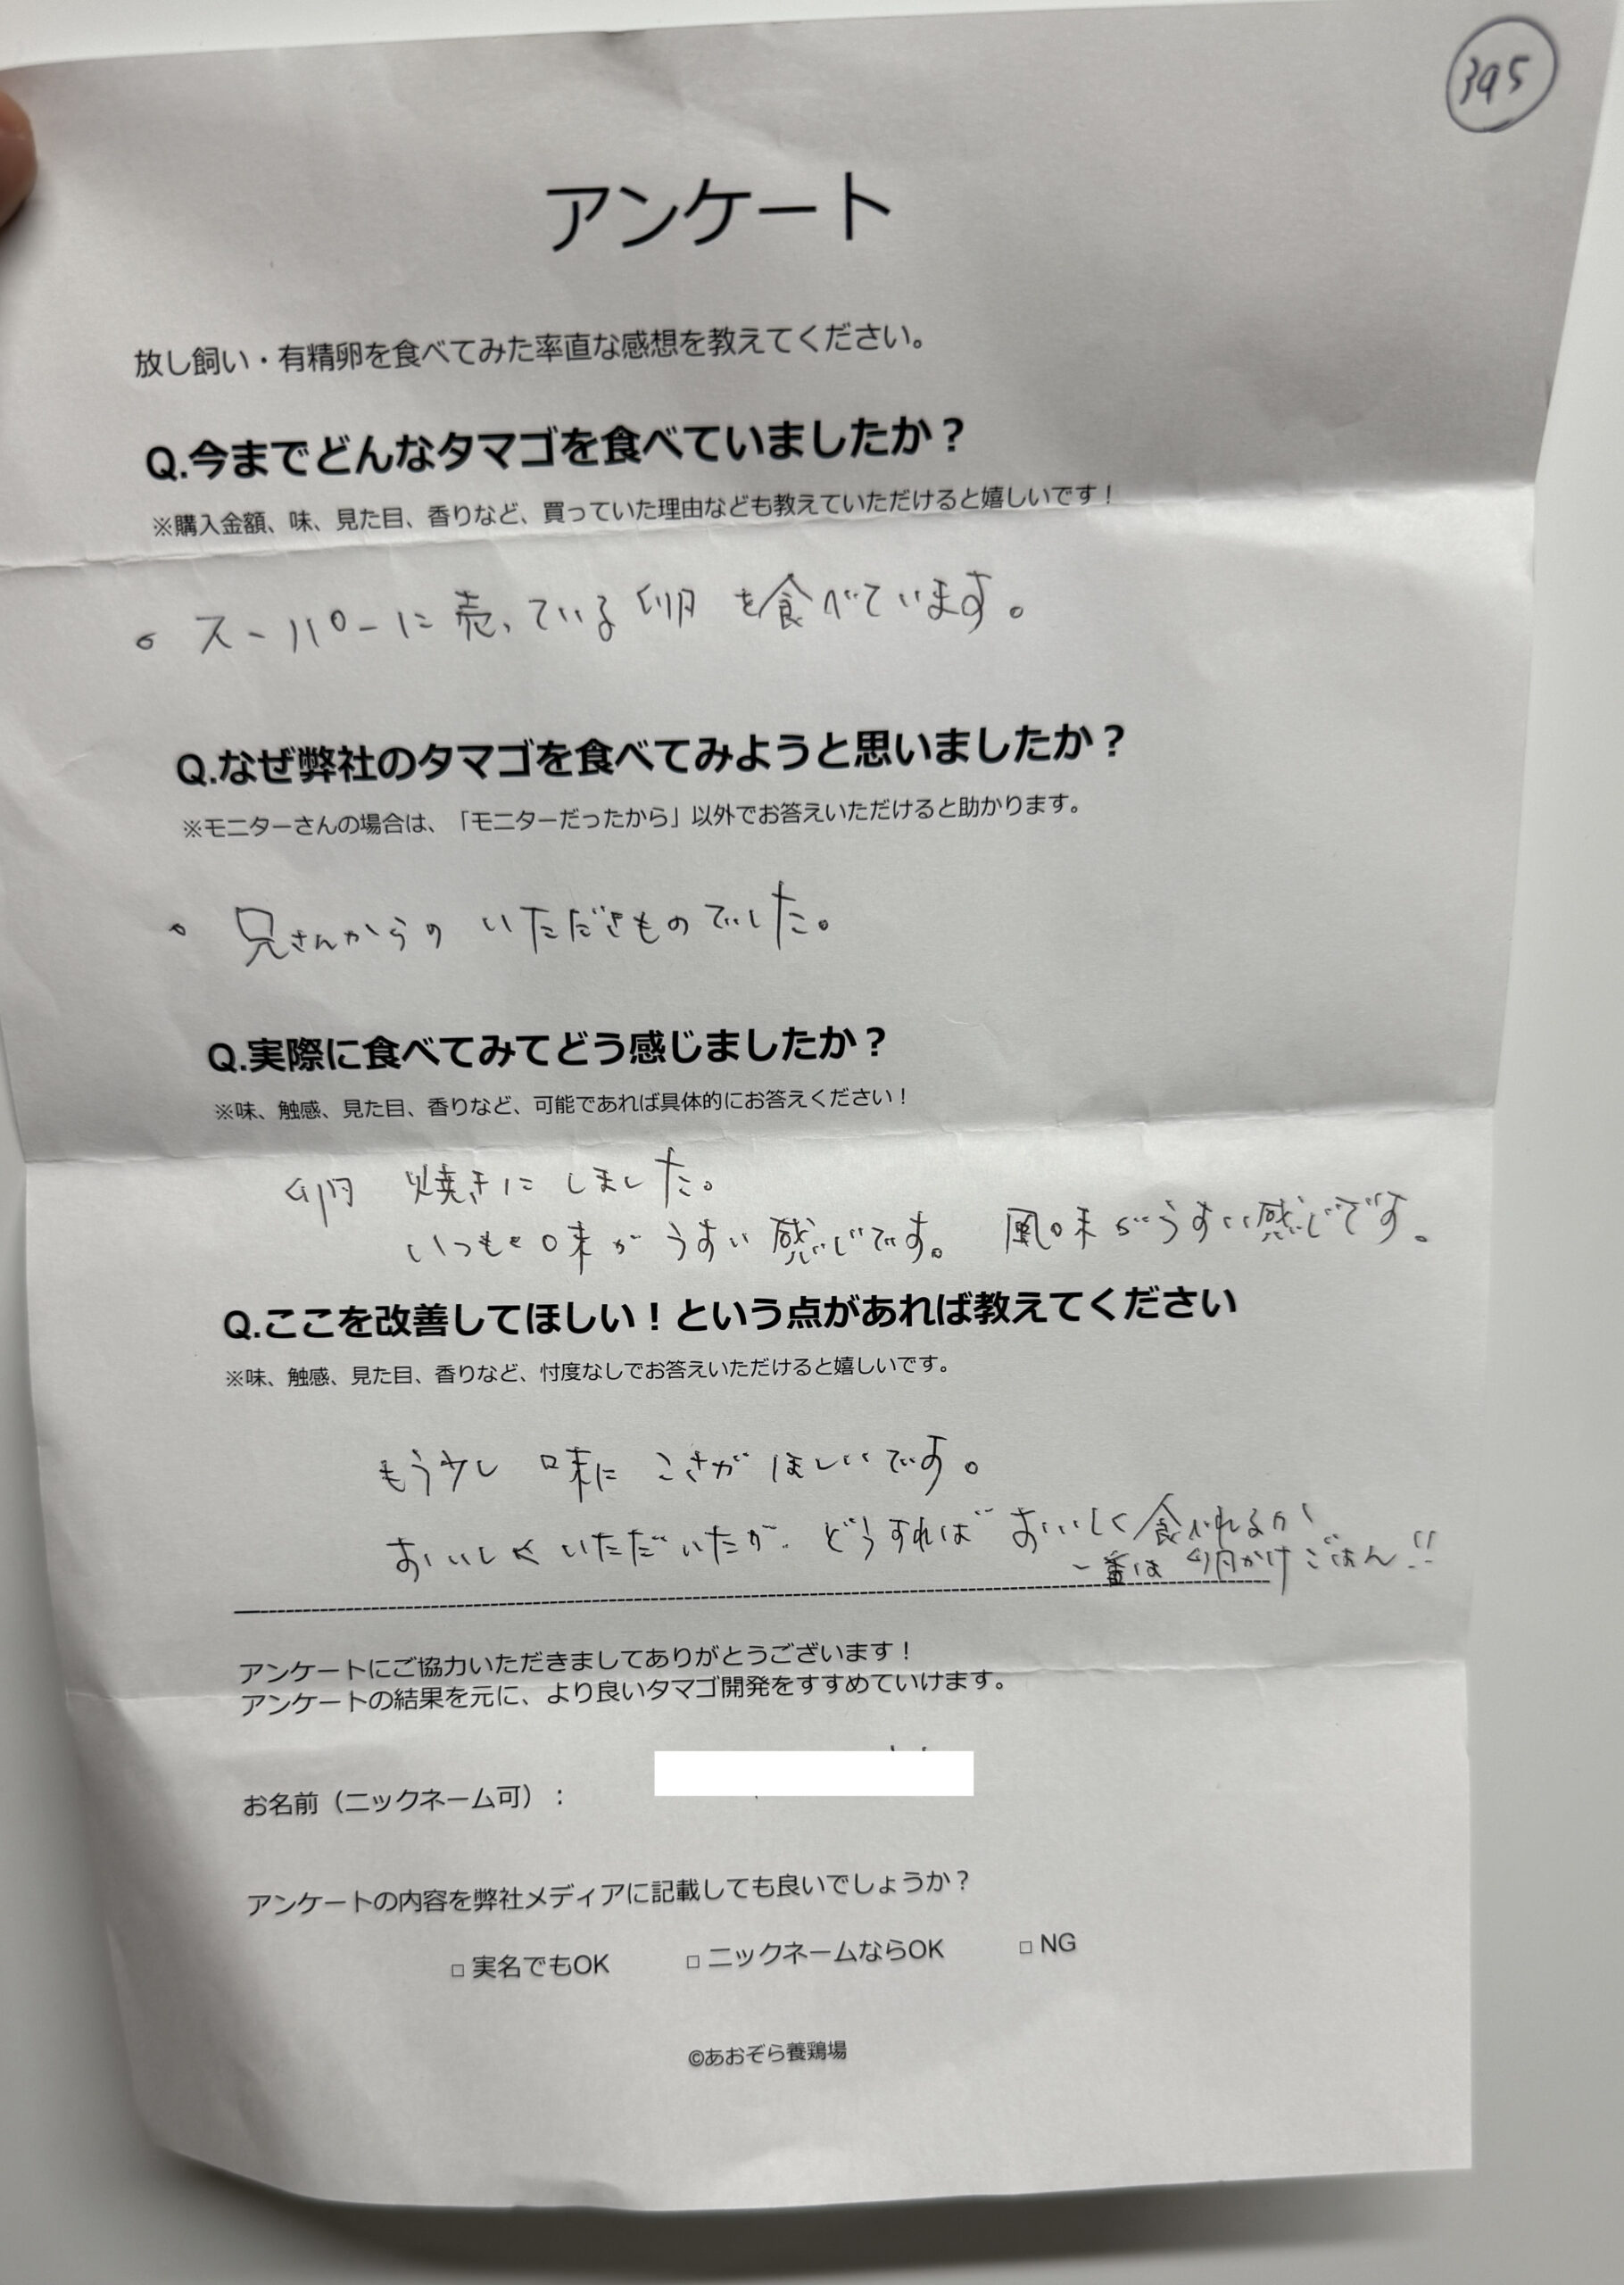 395
アンケート
放し飼い・有精卵を食べてみた率直な感想を教えてください。
Q.今までどんなタマゴを食べていましたか？
※購入金額、味、見た目、香りなど、買っていた理由なども教えていただけると嬉しいです！
。スーパーに売っている卵を食べています。
Q.なぜ弊社のタマゴを食べてみようと思いましたか？
※モニターさんの場合は、「モニターだったから」以外でお答えいただけると助かります。
。兄さんからの いただきものでした。
Q.実際に食べてみてどう感じましたか？
※味、触感、見た目、香りなど、可能であれば具体的にお答えください！
卵 焼きに しました。
いつもと味が うすい 感じです。 風味がうすい感じです。
Q.ここを改善してほしい！という点があれば教えてください
※味、触感、見た目、香りなど、忖度なしでお答えいただけると嬉しいです。
もう少し 味に こさが ほしいです。
おいしく いただいたが、どうすれば おいしく食べれるか
一番は 卵かけごはん!!
アンケートにご協力いただきましてありがとうございます！
アンケートの結果を元に、より良いタマゴ開発をすすめていけます。
お名前（ニックネーム可）：
アンケートの内容を弊社メディアに記載しても良いでしょうか？
□ 実名でもOK □ ニックネームならOK □ NG
©あおぞら養鶏場